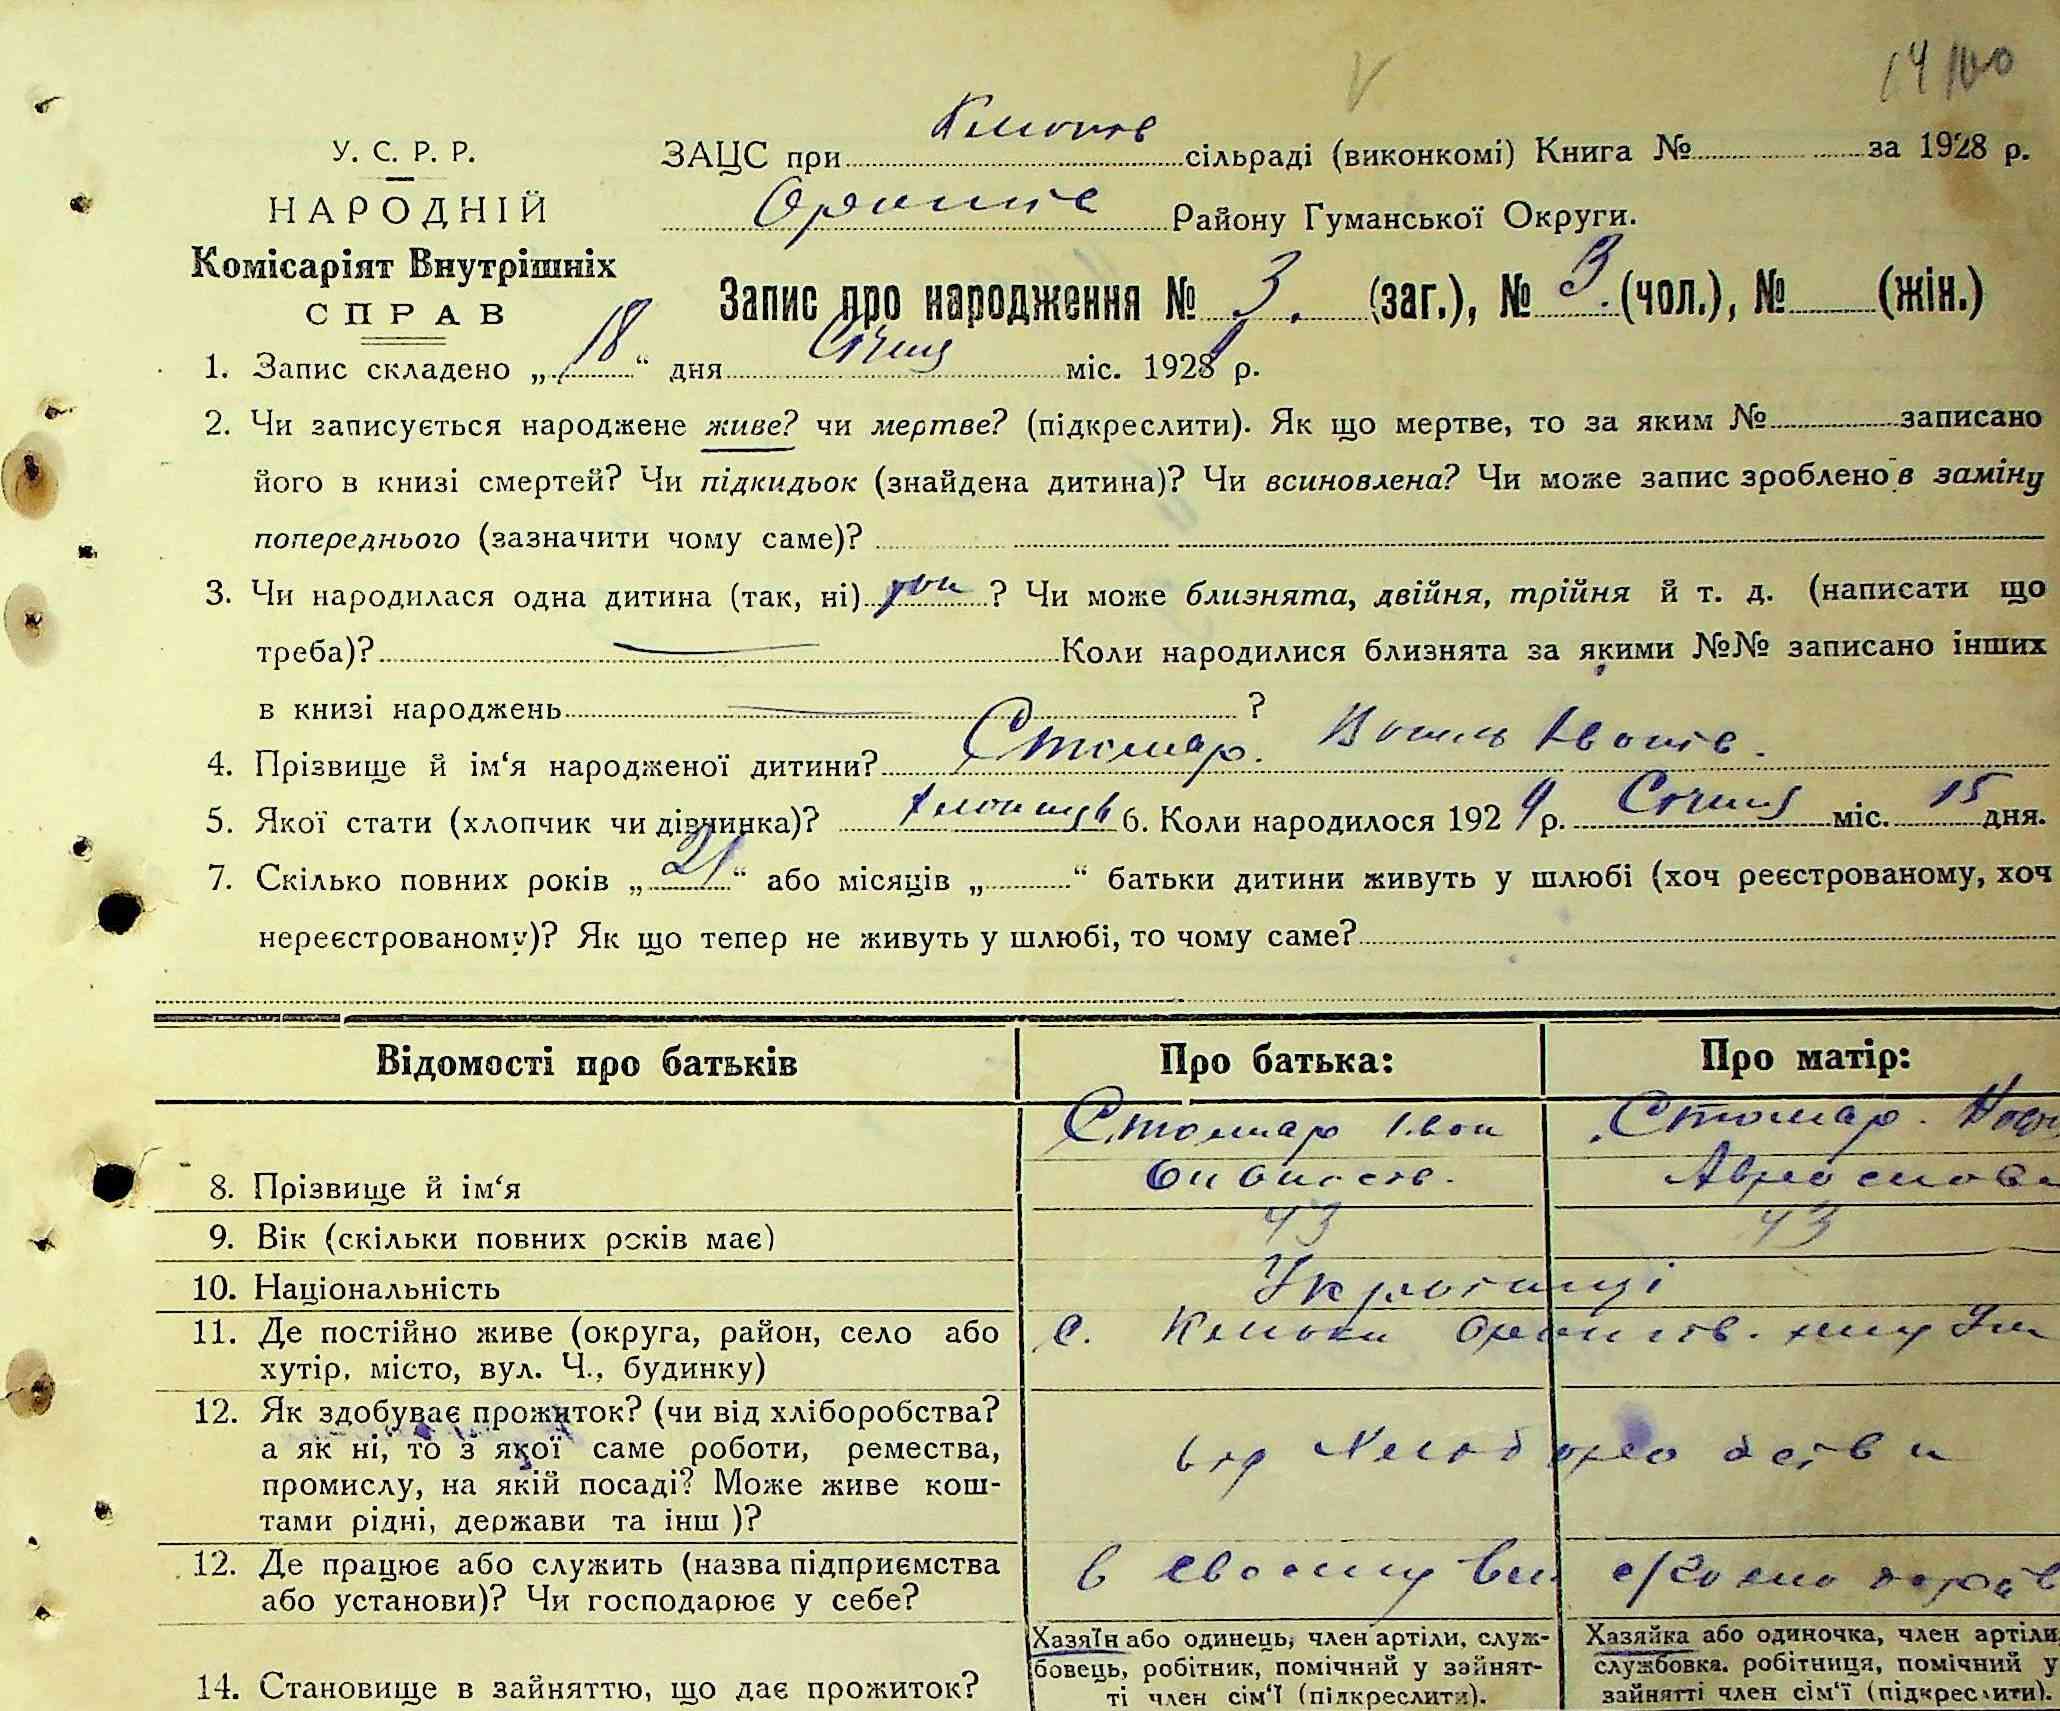 У. С. Р. Р.
НАРОДНІЙ
Комісаріят Внутрішніх
СПРАВ
ЗАЦС при сільраді (виконкомі) Книга № за 1928 р.
Району Гуманської Округи.
Запис про народження № 3. (заг.), № 3. (чол.), № (жін.)
1. Запис складено „18“ дня Січня міс. 1928 р.
2. Чи записується народжене живе? чи мертве? (підкреслити). Як що мертве, то за яким № записано
його в книзі смертей? Чи підкидьок (знайдена дитина)? Чи всиновлена? Чи може запис зроблено в заміну
попереднього (зазначити чому саме)?
3. Чи народилася одна дитина (так, ні) ? Чи може близнята, двійня, трійня й т. д. (написати що
треба)? Коли народилися близнята за якими №№ записано інших
в книзі народжень ?
4. Прізвище й ім‘я народженої дитини? Столяр.
5. Якої стати (хлопчик чи дівчинка)? хлопчик 6. Коли народилося 192 р. Січня міс. 15 дня.
7. Скілько повних років „21“ або місяців „ “ батьки дитини живуть у шлюбі (хоч реєстрованому, хоч
нереєстрованому)? Як що тепер не живуть у шлюбі, то чому саме?
Відомості про батьків
Про батька:
Про матір:
8. Прізвище й ім‘я
Столяр Іван
Столяр.
9. Вік (скільки повних років має)
43
43
10. Національність
Українці
11. Де постійно живе (округа, район, село або
хутір, місто, вул. Ч., будинку)
с.
12. Як здобуває прожиток? (чи від хліборобства?
а як ні, то з якої саме роботи, ремества,
промислу, на якій посаді? Може живе кош-
тами рідні, держави та інш )?
від Хліборобства
12. Де працює або служить (назва підприємства
або установи)? Чи господарює у себе?
в своєму
14. Становище в зайняттю, що дає прожиток?
Хазяїн або одинець, член артіли, служ-
бовець, робітник, помічний у зайнят-
ті член сім‘ї (підкреслити).
Хазяйка або одиночка, член артіли
службовка. робітниця, помічний у
зайнятті член сім‘ї (підкреслити).